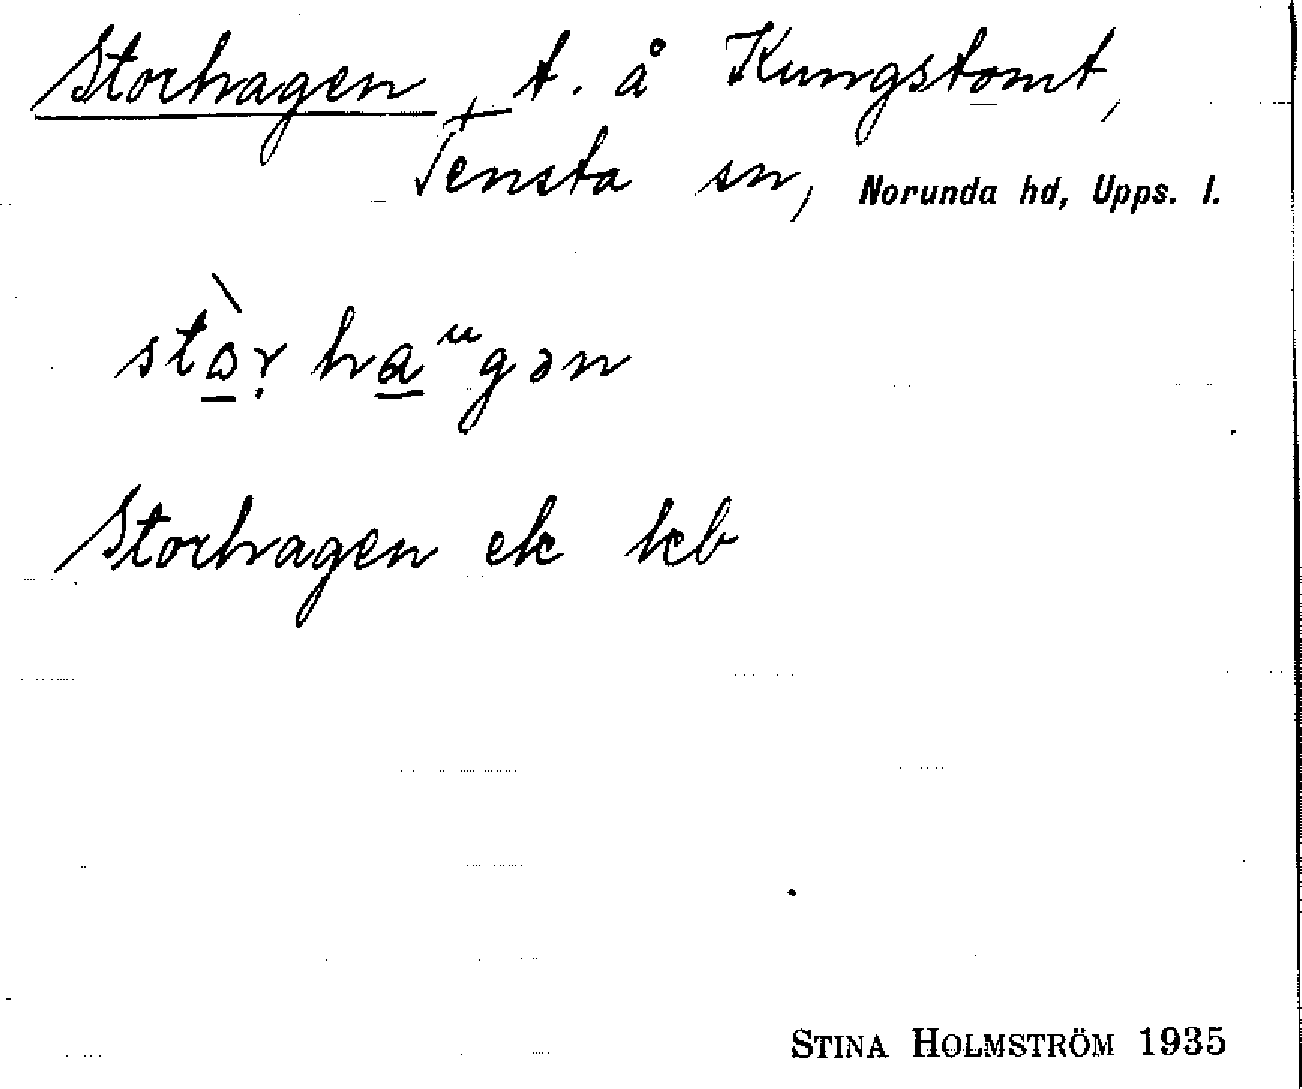 Storhagen, t. å Kungstomt,
Tensta sn, Norunda hd, Upps. l.
stòr̥ haᵘgən
Storhagen ek kb
STINA HOLMSTRÖM 1935